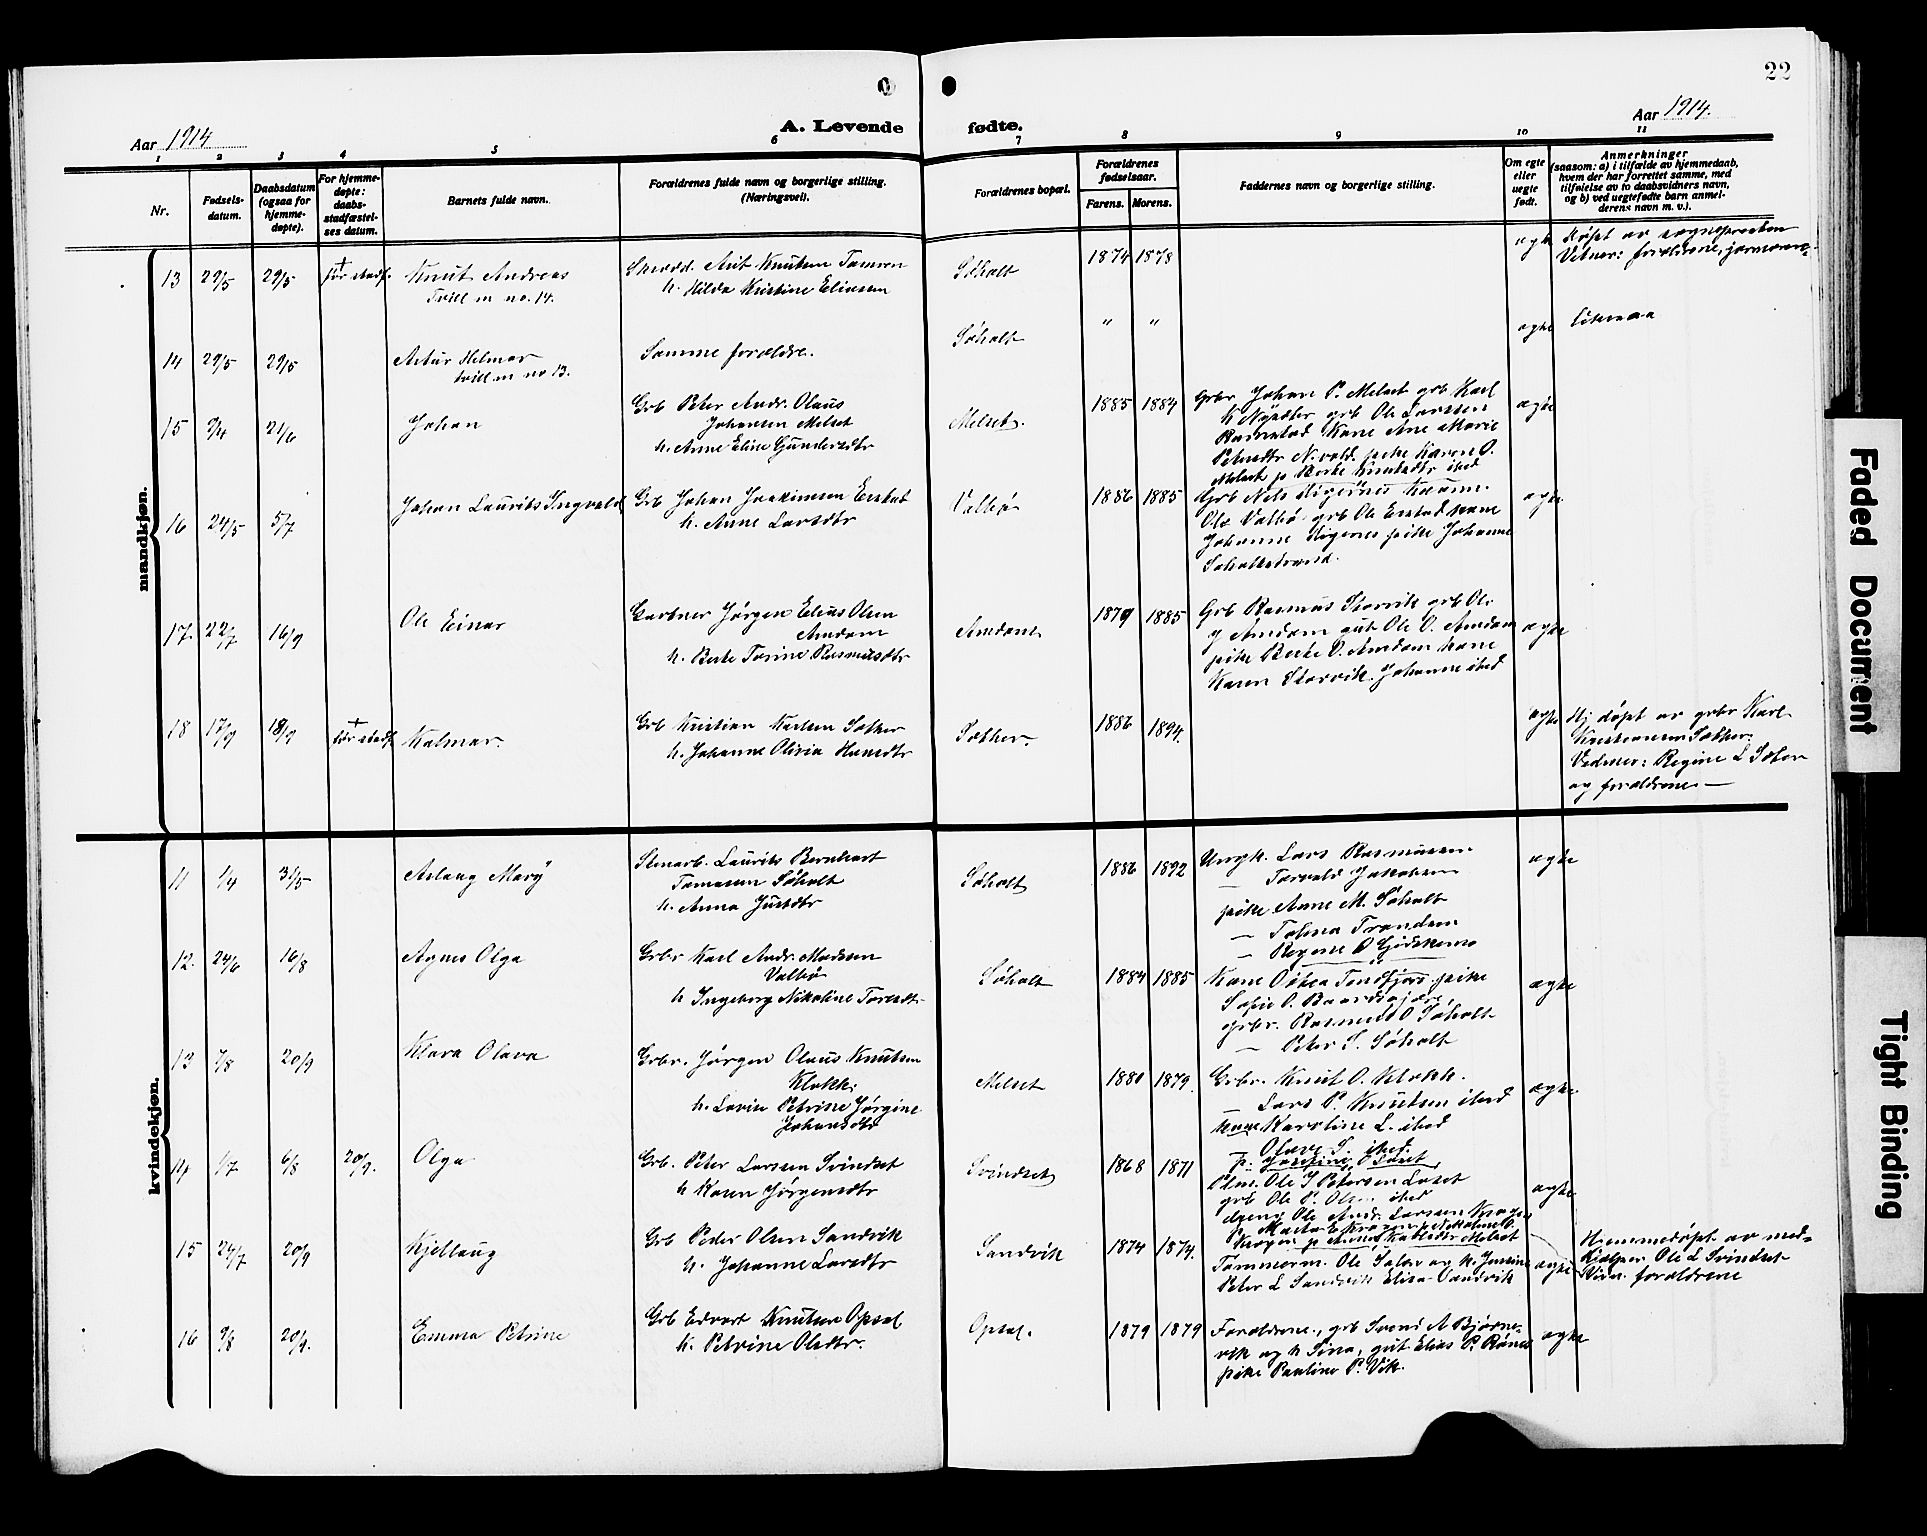 22
Aar 1914
A. Levende fødte.
Aar 1914.
1 2 3 4 5 6 7 8 9 10 11
Nr.
Fødsels-
datum.
Daabsdatum
(ogsaa for
hjemme-
døpte).
For hjemme-
døpte:
daabs-
stadfæstel-
ses datum.
Barnets fulde navn.
Forældrenes fulde navn og borgerlige stilling.
(Næringsvei).
Forældrenes bopæl.
Forældrenes
fødselsaar.
Farens. Morens.
Faddernes navn og borgerlige stilling.
Om egte
eller
uegte
født.
Anmerkninger
(saasom: a) i tilfælde av hjemmedaab,
hvem der har forrettet samme, med
tilføielse av to daabsvidners navn,
og b) ved uegtefødte barn anmel-
derens navn m. v.).
mandkjøn.
13 29/5 29/5 † før stadf. Knut Andreas
Tvill m no. 14.
Knutsen
h. Hilda Kristine Eliasen
Søholt
1874 1878
egte
Døpt av sognepresten
Vidner: forældrene, jormoren
14 29/5 29/5 Artur Helmer
tvill. m no 13.
Samme forældre.
Søholt
" "
egte
Likesaa
15 3/4 21/6 Johan
Grb Peter Andr. Olaus
Johansen Melset
h. Anne Eline Gundersdtr
Melset.
1885 1884
Grbr Johan P. Melset grb Karl
K Nysæter grb Ole Larssen
Kone Ane Marie
Petersdtr pike Karen O.
Melset p
egte
16 24/5 5/7 Johan Laurits Ingvald
Grb Johan Joakimsen Erstad
h. Anne Larsdtr
Valbø
1886 1885
Grb Nels
Ole Valbø grb Ole Erstad kone
Johanne pike Johanne
Søholtstrand.
egte
17. 22/7 16/9 Ole Einar
Gartner Jørgen Elias Olsen
Amdam
h. Berte Tarine Rasmusdtr
Amdam
1879 1885
Grb Rasmus Storvik grb Ole
J Amdam gut Ole O. Amdam
pike Berte O. Amdam kone
Karen Storvik. Johanne ibid
egte
18 17/9 18/9 † før stadf. Kalmar.
Grb Kristian Karlsen Sæther
h. Johanne Olivia Hansdtr
Sæther.
1886 1894.
egte
Hj. døpt av grbr Karl
Kristiansen Sæther.
Vidner: Regine L Sæter
og forældrene —
kvindekjøn.
11 1/4 31/5 Aslaug Mary
Stenarb. Laurits Bernhart
Tomasen Søholt
h. Anna Justdtr
Søholt
1886 1892
Ungk. Lars Rasmussen
— Torvald Jakobsen
pike Anne M. Søholt
— Talma Trondsen
— Regine O Gjidskemo
egte
12. 24/6 16/8 Agnes Olga
Grbr Karl Andr. Madsen
Valbø
h Ingeborg Nikoline Toresdtr
Søholt
1884 1885
Kone pike
Sofie O.
grbr. Rasmus O Søholt
— Peter S. Søholt
egte
13 7/8 20/9 Klara Olava
Grbr. Jørgen Olaus Knutsen
Klokk.
h. Lovise Petrine Jørgine
Johansdtr
Melset
1880 1879.
Grbr. Knut O. Klokk.
— Lars P. Knutsen ibid
kone Karoline L. ibid
— Olave S. ibid.
p:
egte
14 1/7 6/8 20/9. Olga
Grb. Peter Larssen Svindset
h Karen Jørgensdtr
Svindset
1868 1871
Ole J Petersen
grb Ole P. Olsen ibid
Ole Andr. Larssen
egte
15 24/7 20/9 Kjellaug
Grb Peder Olsen Sandvik
h. Johanne Larsdtr
Sandvik
1874 1874.
Tømmerm. Ole Sæter og h. Jensine
Peter L Sandvik Elisa Sandvik
egte
Hjemmedøpt av med-
hjælper Ole L Svindset
Vidn. forældrene
16 9/8 20/9. Emma Petrine
Grb Edvart Knutsen Opsal
h. Petrine Olsdtr.
Opsal.
1879 1879
Forældrene, grb Svend A Bjørne-
vik og h Sina, gut Elias P. Rønes
pike Pauline P. Vik.
egte
Faded Document
Tight Binding